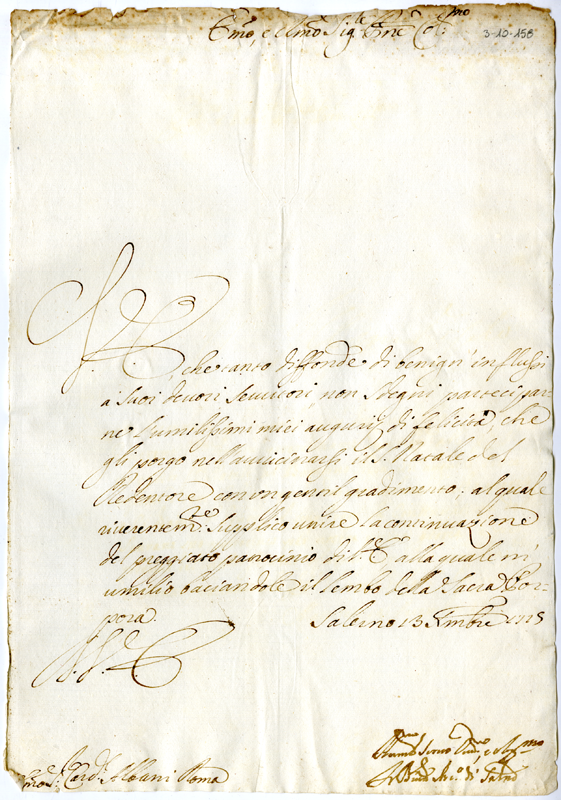 Em̃o, e Rm̃o Sig.re Pñe Col.mo
3-10-158
V. E.
che tanto diffonde di benign' influssi
a suoi devoti servitori, non sdegni partecipar
ne gl'umilissimi miei augurij di felicità, che
gli porgo nell'avvicinarsi il S. Natale del
Redentore con un gentil gradimento; al quale
riverentem.te supplico unire la continuazione
del preggiato patrocinio di V. E. alla quale m'
umilio baciandole il lembo della Sacra Por-
pora.
Salerno 13 Xmbre
V. E.
Card. Albani Roma